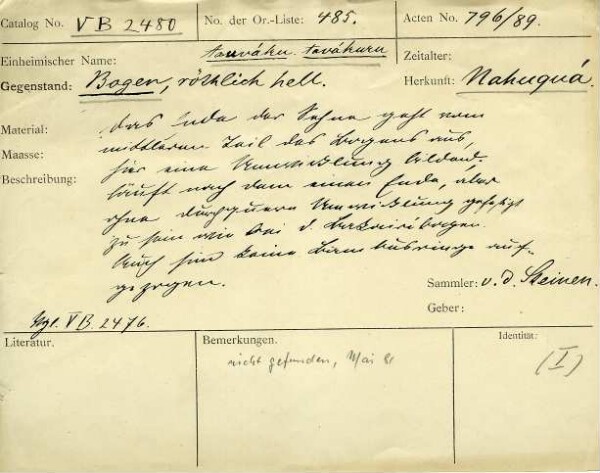 Catalog No. V B 2480 No. der Or.-Liste: 485. Acten No. 796/89.
Einheimischer Name: tauráku. tavákuru Zeitalter:
Gegenstand: Bogen, röthlich hell. Herkunft: Nahuquá.
Material: das Ende der Sehne geht vom
Maasse: mittleren Teil des Bogens aus,
Beschreibung: hier eine Umwicklung bildend,
läuft nach dem einen Ende, aber
ohne durch Umwicklung gefestigt
zu sein wie bei d. Bakairíbogen.
Auch sind keine Bambusringe auf-
gezogen.
Sammler: v. d. Steinen.
Geber:
Vgl. V B. 2476.
Literatur. Bemerkungen. Identität:
nicht gefunden, Mai (I)